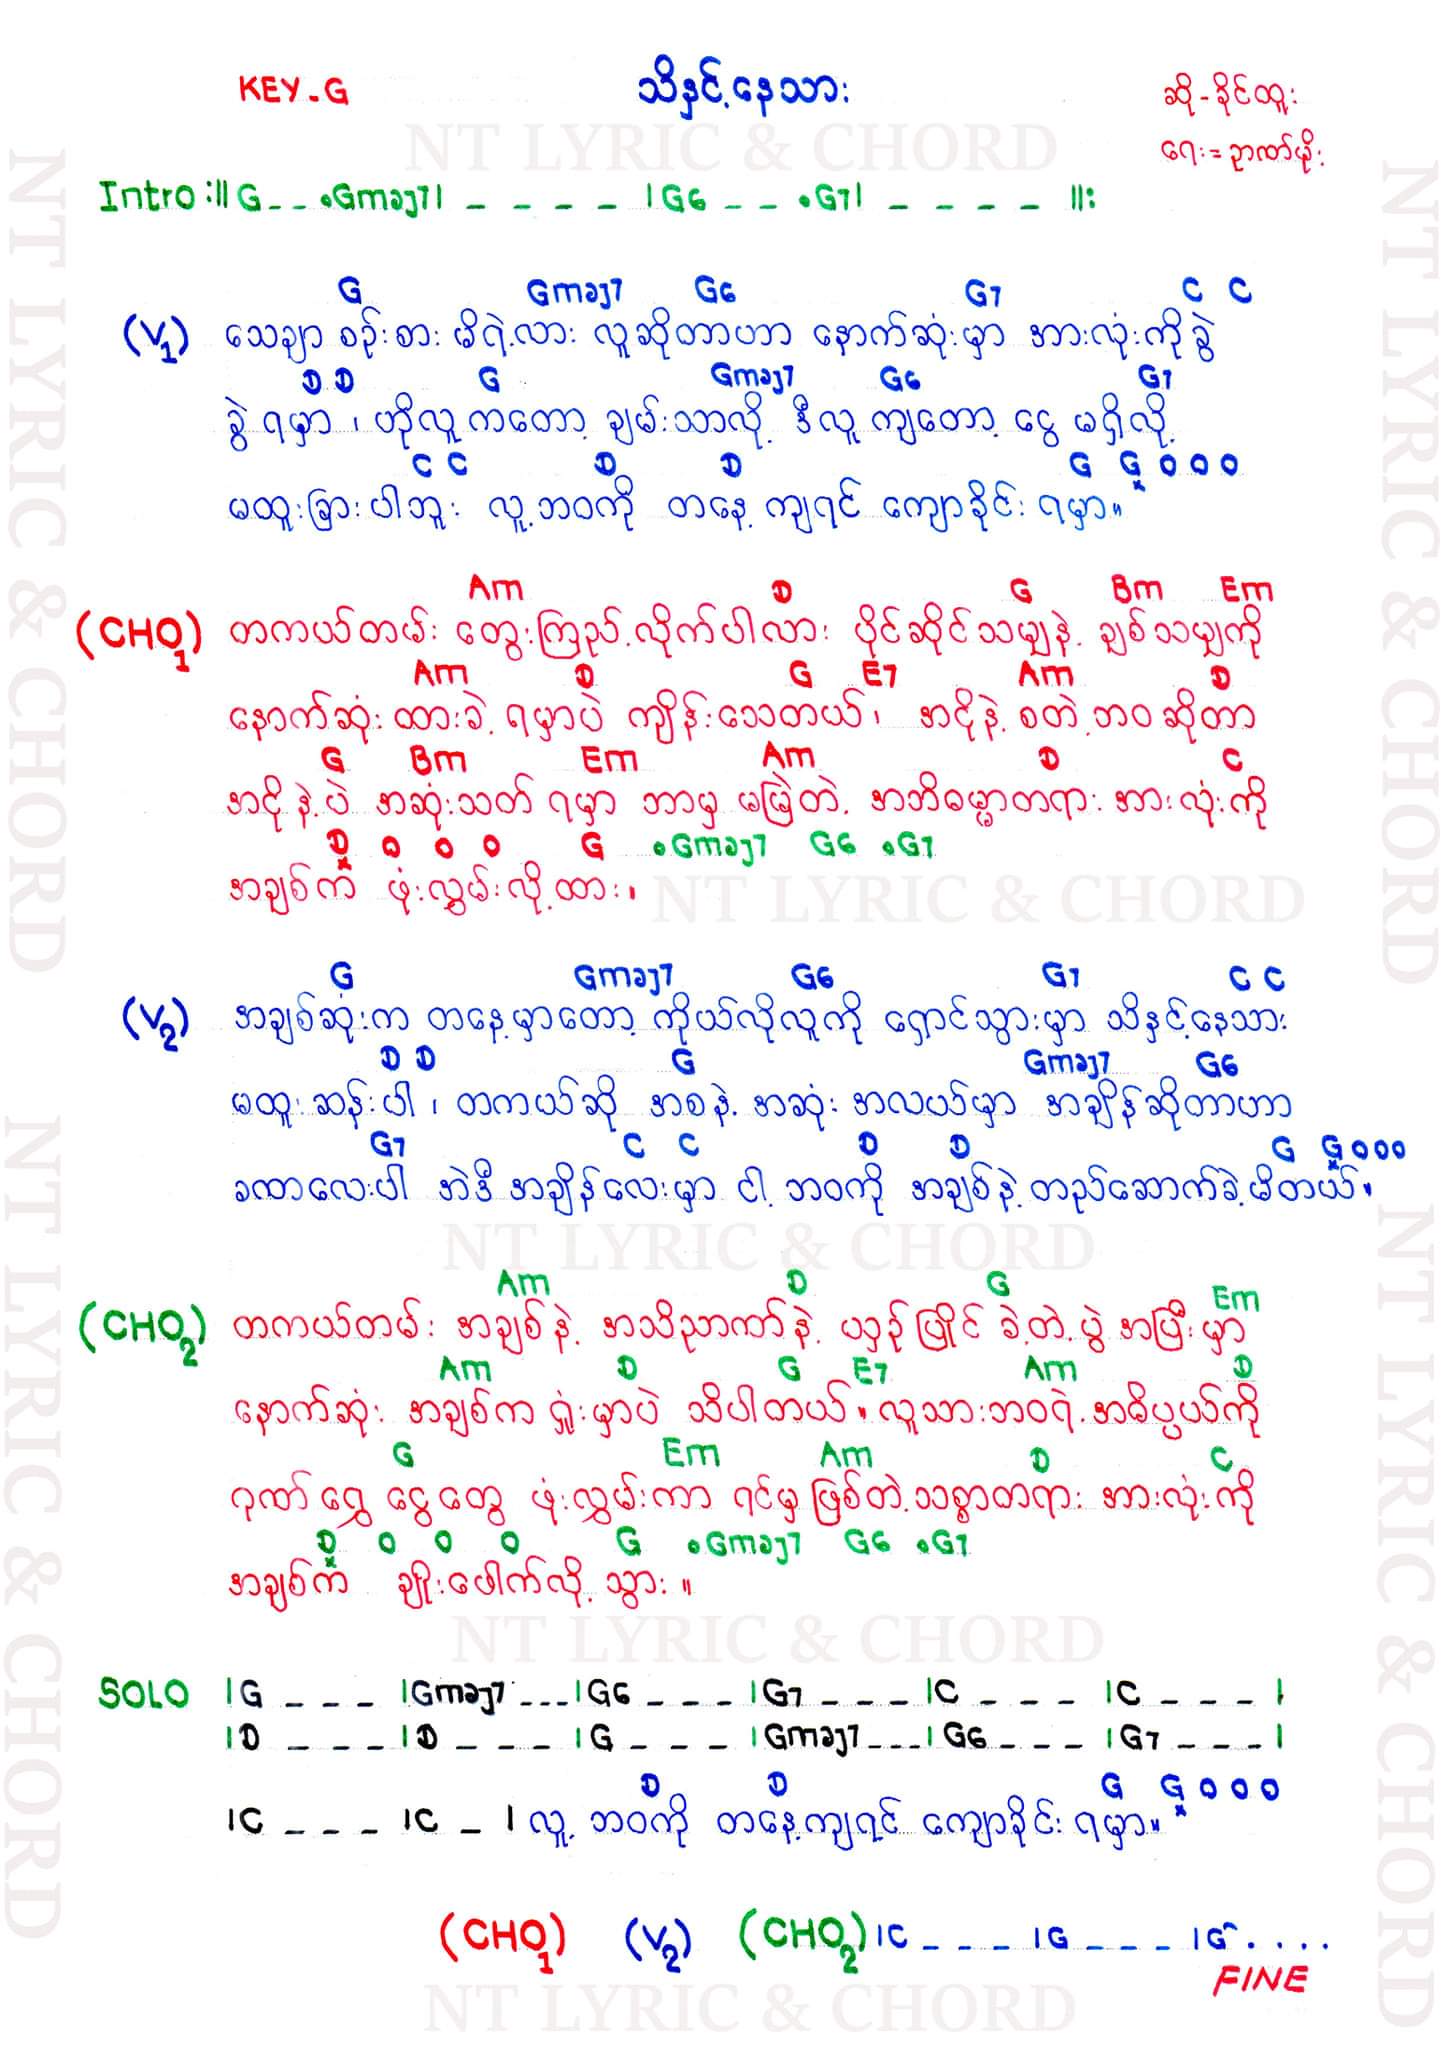 KEY-G သိနှင့်နေသား ဆို-ခိုင်ထူး
ရေး=ဉာဏ်မိုး
NT LYRIC & CHORD
Intro :|| G _ _ .Gmaj7 | _ _ _ _ | G6 _ _ .G7 | _ _ _ _ ||:
G Gmaj7 G6 G7 C C
(V1) သေချာ စဉ်းစား မိရဲ့လား လူဆိုတာဟာ နောက်ဆုံးမှာ အားလုံးကိုခွဲ
D D G Gmaj7 G6 G7
ခွဲ ရမှာ ၊ ဟိုလူ ကတော့ ချမ်းသာလို့ ဒီလူ ကျတော့ ငွေ မရှိလို့
C C D D G G o o o
မထူးခြားပါဘူး လူ့ဘဝကို တနေ့ ကျရင် ကျောခိုင်း ရမှာ။
Am D G Bm Em
(CHO1) တကယ်တမ်း တွေးကြည့်လိုက်ပါလား ပိုင်ဆိုင်သမျှနဲ့ ချစ်သမျှကို
Am D G E7 Am D
နောက်ဆုံး ထားခဲ့ ရမှာပဲ ကျိန်းသေတယ်၊ အငိုနဲ့ စတဲ့ဘဝဆိုတာ
G Bm Em Am D C
အငိုနဲ့ပဲ အဆုံးသတ် ရမှာ ဘာမှ မမြဲတဲ့ အဘိဓမ္မာတရား အားလုံးကို
D o o o G .Gmaj7 G6 .G7
အချစ်က ဖုံးလွှမ်းလို့ထား၊
NT LYRIC & CHORD
G Gmaj7 G6 G7 C C
(V2) အချစ်ဆုံးက တနေ့မှာတော့ ကိုယ်လိုလူကို ရှောင်သွားမှာ သိနှင့်နေသား
D D G Gmaj7 G6
မထူးဆန်းပါ ၊ တကယ်ဆို အစနဲ့ အဆုံး အလယ်မှာ အချိန်ဆိုတာဟာ
G7 C C D D G G o o o
ခဏလေးပါ အဲဒီ အချိန်လေးမှာ ငါ့ ဘဝကို အချစ်နဲ့ တည်ဆောက်ခဲ့မိတယ်။
NT LYRIC & CHORD
Am D G Em
(CHO2) တကယ်တမ်း အချစ်နဲ့ အသိဉာဏ်နဲ့ ယှဉ်ပြိုင် ခဲ့တဲ့ပွဲ အပြီးမှာ
Am D G E7 Am D
နောက်ဆုံး အချစ်က ရှုံးမှာပဲ သိပါတယ်။ လူသားဘဝရဲ့ အဓိပ္ပယ်ကို
G Em Am D C
ဂုဏ် ရွှေ ငွေ တွေ ဖုံးလွှမ်းကာ ရင်မှ ဖြစ်တဲ့သစ္စာတရား အားလုံးကို
D o o o G .Gmaj7 G6 .G7
အချစ်က ချိုးဖေါက်လို့ သွား။
NT LYRIC & CHORD
SOLO |G _ _ _ |Gmaj7 _ _ _ |G6 _ _ _ |G7 _ _ _ |C _ _ _ |C _ _ _ |
|D _ _ _ |D _ _ _ |G _ _ _ |Gmaj7 _ _ _ |G6 _ _ _ |G7 _ _ _ |
D D G G o o o
|C _ _ _ |C _ | လူ့ ဘဝကို တနေ့ကျရင် ကျောခိုင်း ရမှာ။
(CHO1) (V2) (CHO2) |C _ _ _ |G _ _ _ |G . . . .
FINE
NT LYRIC & CHORD